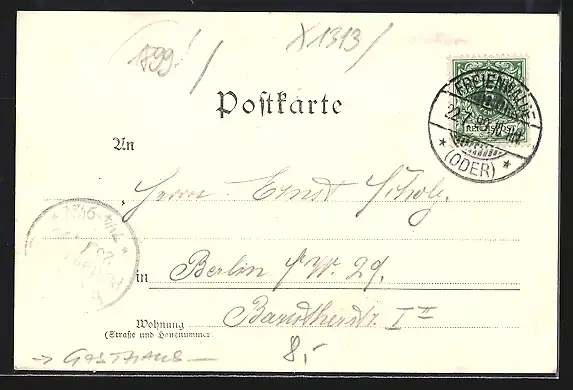 1899!
X1313/
Postkarte
REICHSPOST
FREIENWALDE
(ODER)
An
Herrn Ernst Scholz,
in Berlin S.W. 29.
Wohnung
(Straße und Hausnummer)
II
→ GASTHAUS
8,-